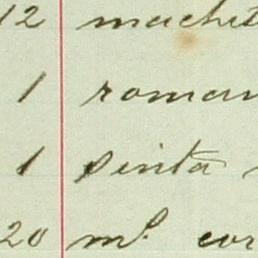 12 machet
1 roman
1 sinta
20 m.s cor